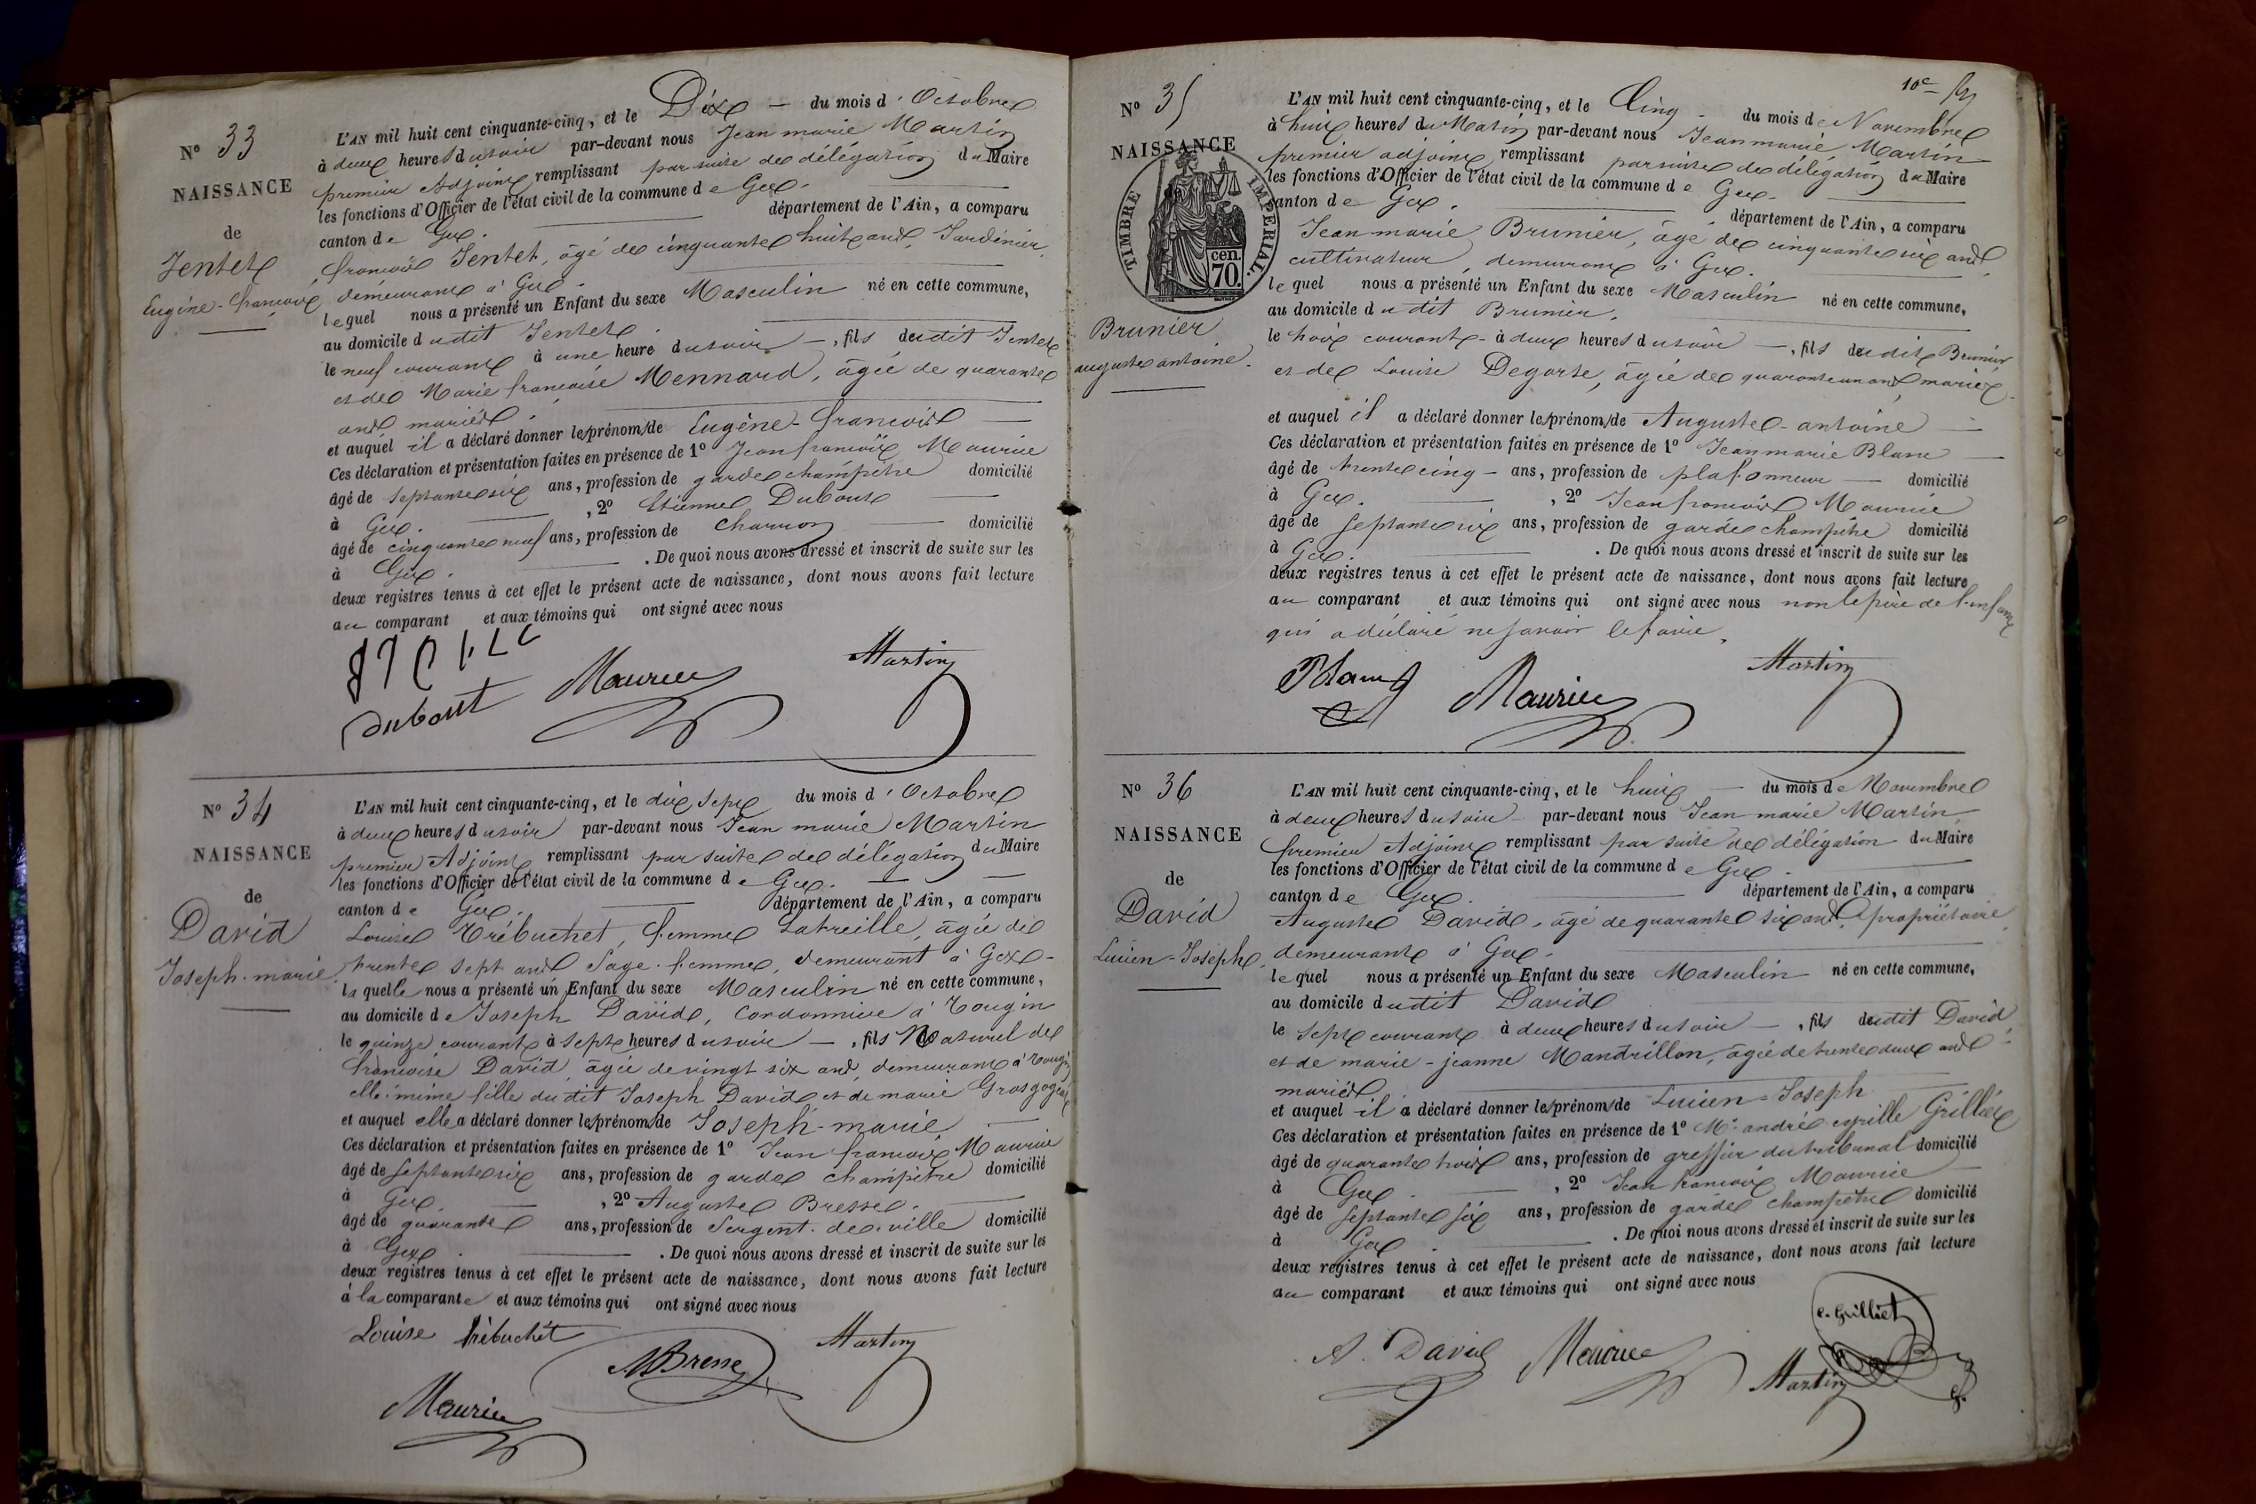 N° 33
NAISSANCE
de
Jentet
Eugène-françois
L'AN mil huit cent cinquante-cinq, et le Dix du mois d'Octobre
à deux heures du soir par-devant nous Jean marie Martin
premier Adjoint remplissant par suite de délégation du Maire
les fonctions d'Officier de l'état civil de la commune de Gex.
canton de Gex. département de l'Ain, a comparu
françois Jentet, âgé de cinquante huit ans, Jardinier,
demeurant à Gex.
lequel nous a présenté un Enfant du sexe Masculin né en cette commune,
au domicile dudit Jentet.
le neuf courant à une heure du soir, fils dudit Jentet
et de Marie françoise Mennard, âgée de quarante
ans mariés.
et auquel il a déclaré donner les prénoms de Eugène-françois
Ces déclaration et présentation faites en présence de 1° Jean françois Maurice
âgé de septante six ans, profession de garde champêtre domicilié
à Gex. , 2° Etienne Dubout
âgé de cinquante neuf ans, profession de charron domicilié
à Gex. . De quoi nous avons dressé et inscrit de suite sur les
deux registres tenus à cet effet le présent acte de naissance, dont nous avons fait lecture
au comparant et aux témoins qui ont signé avec nous
Maurice Martin
dubout
N° 34
NAISSANCE
de
David
Joseph-marie
L'AN mil huit cent cinquante-cinq, et le dix sept du mois d'Octobre
à deux heures du soir par-devant nous Jean marie Martin
premier Adjoint remplissant par suite de délégation du Maire
les fonctions d'Officier de l'état civil de la commune de Gex.
canton de Gex. département de l'Ain, a comparu
Louise Trébuchet, femme Latreille, âgée de
trente sept ans Sage-femme, demeurant à Gex-
laquelle nous a présenté un Enfant du sexe Masculin né en cette commune,
au domicile de Joseph David, Cordonnier à Tougin
le quinze courant à sept heures du soir, fils Naturel de
françoise David, âgée de vingt six ans, demeurant à Tougin
elle-même fille dudit Joseph David et de marie
et auquel elle a déclaré donner les prénoms de Joseph-marie
Ces déclaration et présentation faites en présence de 1° Jean françois Maurice
âgé de septante six ans, profession de garde champêtre domicilié
à Gex. , 2° Auguste Bresse.
âgé de quarante ans, profession de Sergent-de-ville domicilié
à Gex. . De quoi nous avons dressé et inscrit de suite sur les
deux registres tenus à cet effet le présent acte de naissance, dont nous avons fait lecture
à la comparante et aux témoins qui ont signé avec nous
Louise trébuchet Bresse Martin
Maurice
10e
N° 35
NAISSANCE
de
TIMBRE IMPERIAL.
cen. 70.
Brunier
auguste antoine.
L'AN mil huit cent cinquante-cinq, et le Cinq du mois de Novembre
à huit heures du Matin par-devant nous Jean marie Martin
premier adjoint remplissant par suite de délégation du Maire
les fonctions d'Officier de l'état civil de la commune de Gex.
canton de Gex. département de l'Ain, a comparu
Jean marie Brunier, âgé de cinquante six ans,
cultivateur, demeurant à Gex.
lequel nous a présenté un Enfant du sexe Masculin né en cette commune,
au domicile dudit Brunier.
le trois courant à deux heures du soir, fils dudit Brunier
et de Louise Degorse, âgée de quarante un ans mariés.
et auquel il a déclaré donner les prénoms de Auguste-antoine
Ces déclaration et présentation faites en présence de 1° Jean marie Blanc
âgé de trente cinq ans, profession de plafonneur domicilié
à Gex. , 2° Jean françois Maurice
âgé de septante six ans, profession de garde champêtre domicilié
à Gex. . De quoi nous avons dressé et inscrit de suite sur les
deux registres tenus à cet effet le présent acte de naissance, dont nous avons fait lecture
au comparant et aux témoins qui ont signé avec nous non le père de l'enfant
qui a déclaré ne savoir le faire.
Blanc Maurice Martin
N° 36
NAISSANCE
de
David
Lucien-Joseph.
L'AN mil huit cent cinquante-cinq, et le huit du mois de Novembre
à deux heures du soir par-devant nous Jean marie Martin
premier Adjoint remplissant par suite de délégation du Maire
les fonctions d'Officier de l'état civil de la commune de Gex.
canton de Gex. département de l'Ain, a comparu
Auguste David, âgé de quarante six ans, propriétaire,
demeurant à Gex.
lequel nous a présenté un Enfant du sexe Masculin né en cette commune,
au domicile dudit David
le sept courant à deux heures du soir, fils dudit David
et de marie-jeanne Mandrillon, âgée de trente deux ans
mariés.
et auquel il a déclaré donner les prénoms de Lucien-Joseph
Ces déclaration et présentation faites en présence de 1° Mr. andré cyrille Grilliet
âgé de quarante trois ans, profession de greffier du tribunal domicilié
à Gex. , 2° Jean françois Maurice
âgé de septante six ans, profession de garde champêtre domicilié
à Gex. . De quoi nous avons dressé et inscrit de suite sur les
deux registres tenus à cet effet le présent acte de naissance, dont nous avons fait lecture
au comparant et aux témoins qui ont signé avec nous
c. Grilliet
A. David Maurice Martin